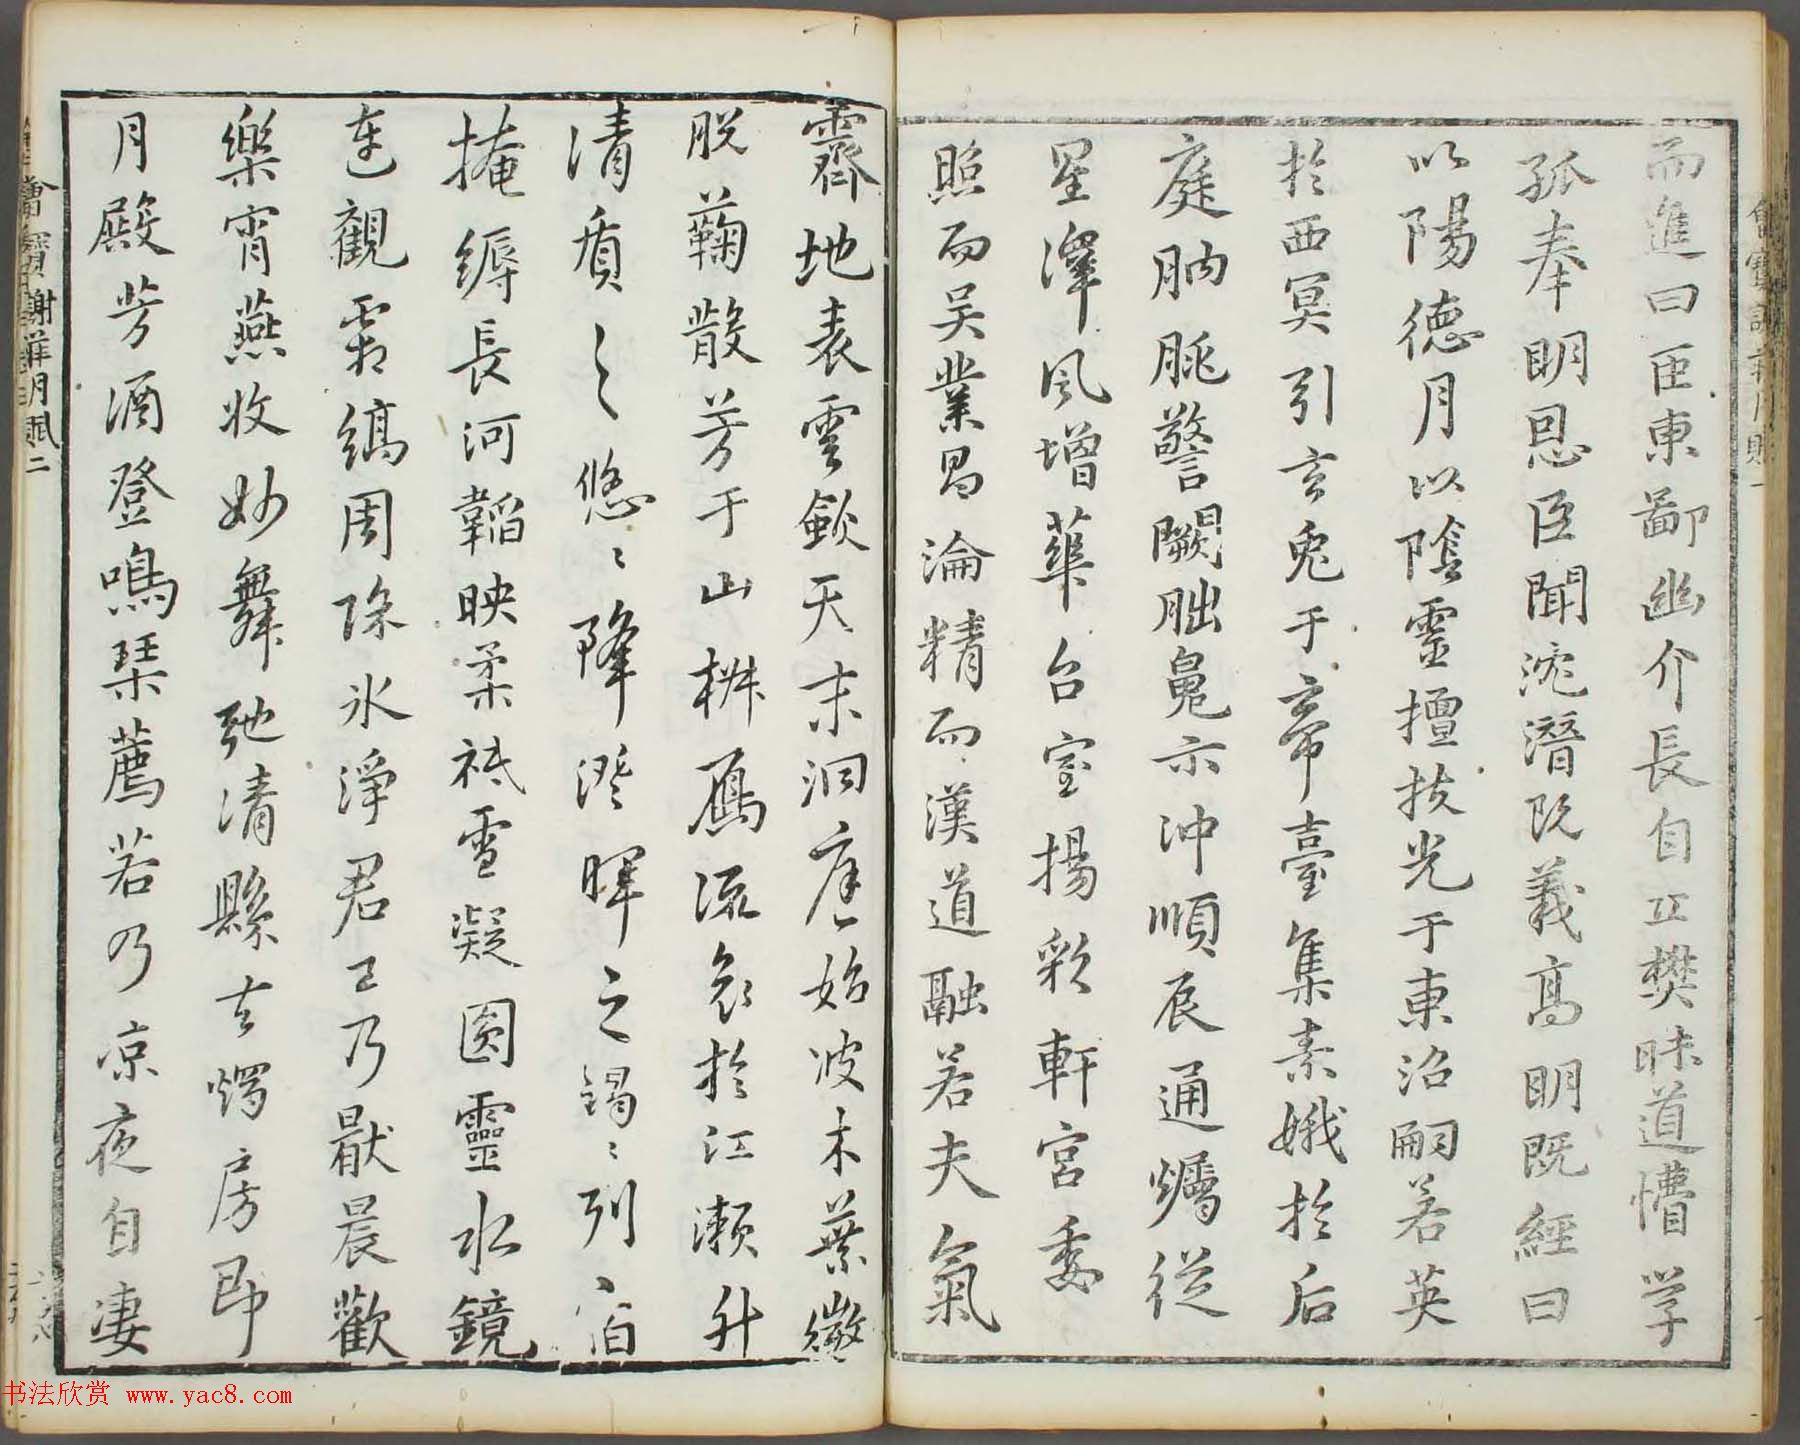 而進曰臣東鄙幽介長自丘樊昧道懵学
孤奉明恩臣聞沈潛既義高明既經日
以陽德月以陰靈擅扶光于東沼嗣若英
於西冥引玄兔于帝臺集素娥於后
庭朒朓警闕朏魄示冲順辰通燭從
星澤風增華台室揚彩軒宮委
照而吴業昌淪精而漢道融若夫氣
霽地表雲斂天末洞庭始波木葉微
脱菊散芳于山椒雁流哀於江瀨升
清質之悠〻降澄暉之藹〻列宿
掩縟長河韜映柔祗雪凝圓靈水鏡
連觀霜縞周除氷淨君王乃猒晨歡
樂宵燕收妙舞弛清縣去燭房即
月殿芳酒登鳴琴薦若乃凉夜自凄
謝莊月賦二
书法欣赏 www.yac8.com